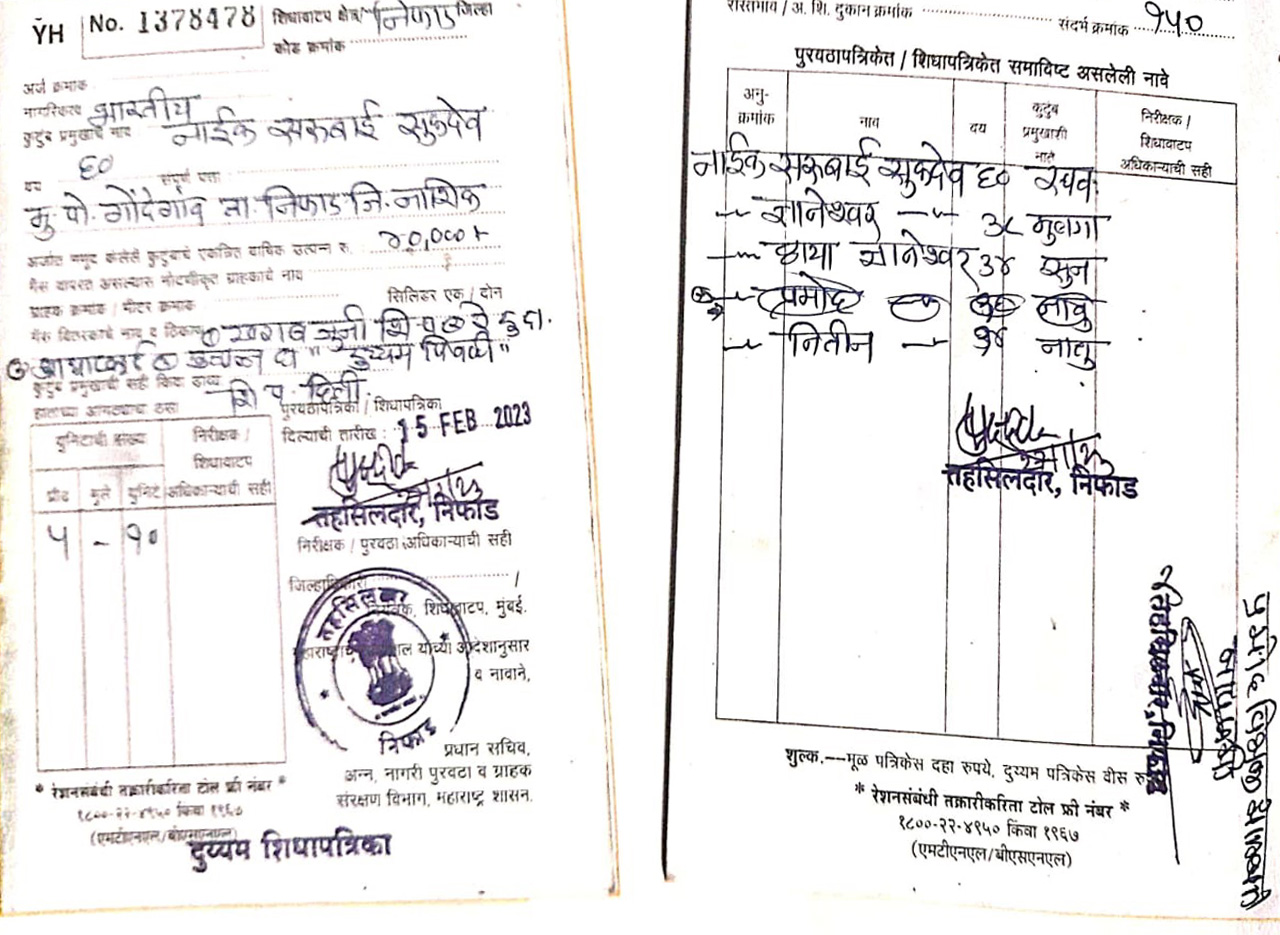 ŸH No. 1378478 शिधावाटप क्षेत्र/ निफाड जिल्हा
कोड क्रमांक
अर्ज क्रमांक
नागरिकत्व भारतीय
कुटुंब प्रमुखाचे नाव नाईक सरुबाई सुकदेव
वय ६० संपूर्ण पत्ता
मु. पो. गोंदेगांव ता. निफाड जि. नाशिक
अर्जात नमूद केलेले कुटुंबाचे एकत्रित वार्षिक उत्पन्न रु.
गॅस वापरत असल्यास नोंदणीकृत ग्राहकाचे नाव
ग्राहक क्रमांक / मीटर क्रमांक सिलिंडर एक / दोन
गॅस वितरकाचे नाव व ठिकाण खराब जुनी शि. प.
"दुय्यम पिवळी"
कुटुंब प्रमुखाची सही किंवा डाव्या
हाताच्या अंगठ्याचा ठसा शि. प. दिली.
पुरवठापत्रिका / शिधापत्रिका
दिल्याची तारीख : 15 FEB 2023
युनिटाची संख्या निरीक्षक / शिधावाटप
प्रौढ मुले युनिट अधिकाऱ्याची सही
५ - १०
तहसिलदार, निफाड
निरीक्षक / पुरवठा अधिकाऱ्याची सही
जिल्हाधिकारी /
नियंत्रक, शिधावाटप, मुंबई.
तहसिलदार
महाराष्ट्राचे राज्यपाल यांच्या आदेशानुसार
व नावाने,
निफाड
प्रधान सचिव,
अन्न, नागरी पुरवठा व ग्राहक
संरक्षण विभाग, महाराष्ट्र शासन.
* रेशनसंबंधी तक्रारीकरिता टोल फ्री नंबर *
१८००-२२-४९५० किंवा १९६७
(एमटीएनएल/बीएसएनएल)
दुय्यम शिधापत्रिका
रास्तभाव / अ. शि. दुकान क्रमांक संदर्भ क्रमांक १५०
पुरवठापत्रिकेत / शिधापत्रिकेत समाविष्ट असलेली नावे
अनु-क्रमांक नाव वय कुटुंब प्रमुखाशी नाते निरीक्षक / शिधावाटप अधिकाऱ्याची सही
नाईक सरुबाई सुकदेव ६० स्वतः
-"- ज्ञानेश्वर -"- ३८ मुलगा
-"- छाया ज्ञानेश्वर ३४ सुन
-"- प्रमोद नातु
-"- नितीन -"- नातु
तहसिलदार, निफाड
तहसिलदार, निफाड
शुल्क.---मूळ पत्रिकेस दहा रुपये, दुय्यम पत्रिकेस वीस
* रेशनसंबंधी तक्रारीकरिता टोल फ्री नंबर *
१८००-२२-४९५० किंवा १९६७
(एमटीएनएल/बीएसएनएल)